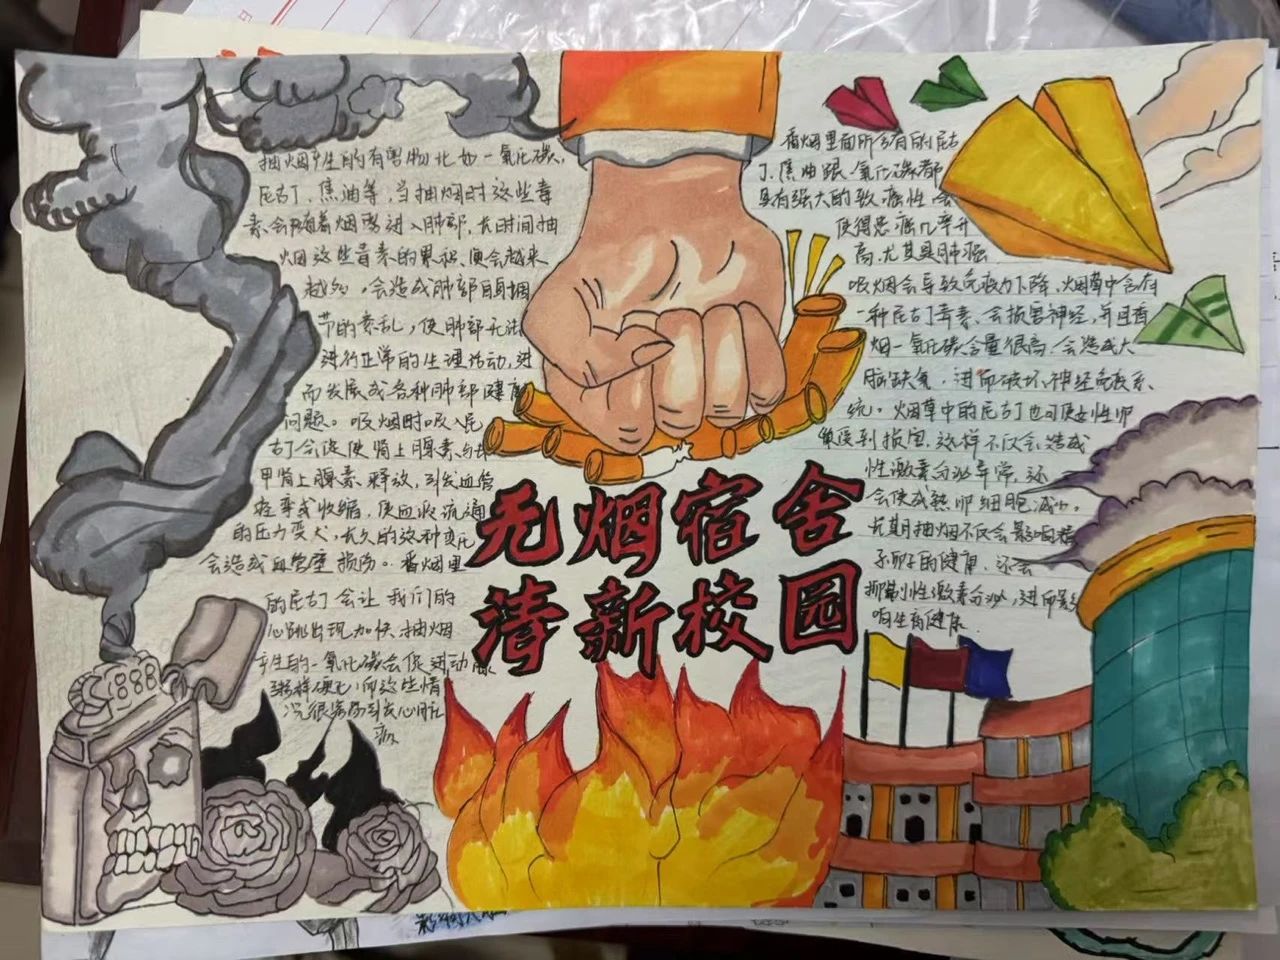 抽烟产生的有害物比如一氧化碳，
尼古丁、焦油等，当抽烟时这些毒
素会随着烟雾进入肺部，长时间抽
烟这些毒素的累积，便会越来
越多，会造成肺部自身调
节的紊乱，使肺部无法
进行正常的生理活动，进
而发展成各种肺部健康
问题。吸烟时吸入尼
古丁会促使肾上腺素与去
甲肾上腺素释放，引发血管
痉挛或收缩，使血液流通
的压力变大，长久的这种变化
会造成血管壁损伤。香烟里
的尼古丁会让我们的
心跳出现加快、抽烟
产生的一氧化碳会促进动脉
粥样硬化，而这些情
况很容易引发心脏
病
无烟宿舍
清新校园
香烟里面所含有的尼古
丁、焦油跟一氧化碳都
具有强大的致癌性，会
使得患癌几率升
高，尤其是肺癌
吸烟会导致免疫力下降，烟草中含有
一种尼古丁毒素、会损害神经，并且香
烟一氧化碳含量很高，会造成大
脑缺氧，进而破坏神经免疫系
统。烟草中的尼古丁也可使女性卵
巢受到损害，这样不仅会造成
性激素分泌异常，还
会使成熟卵细胞减小。
尤其抽烟不仅会影响精
子卵子的健康，还会
抑制性激素分泌，进而影
响生育健康。